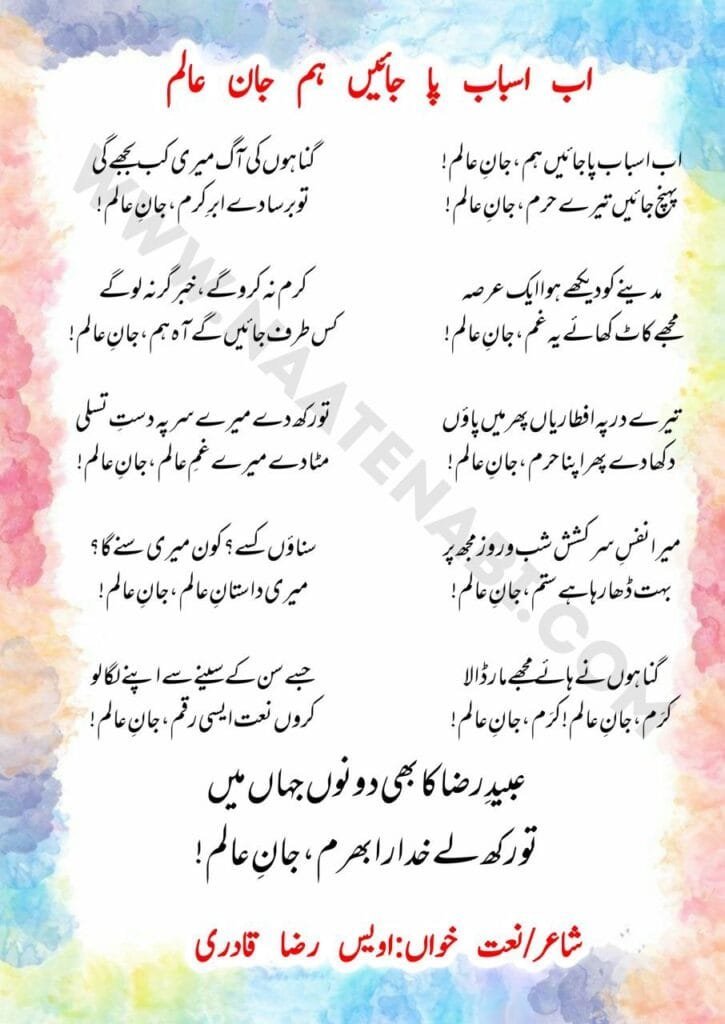 اب اسباب پا جائیں ہم جان عالم
اب اسباب پا جائیں ہم، جانِ عالم!
پہنچ جائیں تیرے حرم، جانِ عالم!
مدینے کو دیکھے ہوا ایک عرصہ
مجھے کاٹ کھائے یہ غم، جانِ عالم!
تیرے در پہ افطاریاں پھر میں پاؤں
دکھا دے پھر اپنا حرم، جانِ عالم!
میرا نفسِ سرکشش شب و روز مجھ پر
بہت ڈھا رہا ہے ستم، جانِ عالم!
گناہوں نے ہائے مجھے مار ڈالا
کرَم، جانِ عالم! کرَم، جانِ عالم!
گناہوں کی آگ میری کب بجھے گی
تو برسا دے ابرِ کرم، جانِ عالم!
کرم نہ کرو گے، خبر گر نہ لو گے
کس طرف جائیں گے آہ ہم، جانِ عالم!
تو رکھ دے میرے سر پہ دستِ تسلی
مٹا دے میرے غمِ عالم، جانِ عالم!
سناؤں کسے؟ کون میری سنے گا؟
میری داستانِ عالم، جانِ عالم!
جسے سن کے سینے سے اپنے لگا لو
کروں نعت ایسی رقم، جانِ عالم!
عبیدِ رضا کا بھی دونوں جہاں میں
تو رکھ لے خدارا بھرم، جانِ عالم!
شاعر/نعت خواں: اویس رضا قادری
WWW.NAATENABI.COM